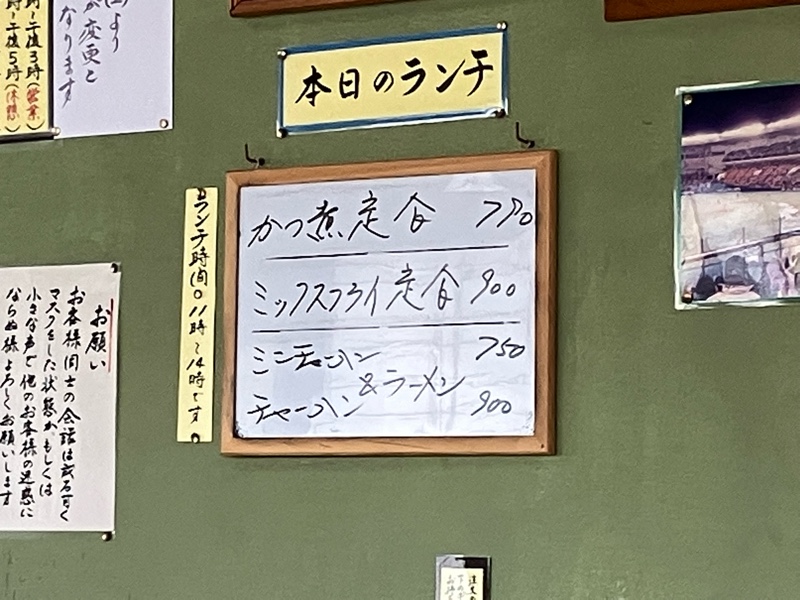 より
が変更と
なります
時～午後3時(営業)
時～午後5時(休憩)
本日のランチ
かつ煮定食 770
ミックスフライ定食 900
ミニチャーハン 750
&ラーメン
チャーハン 900
ランチ時間は11時～14時です
お願い
お客様同士の会話は成る可く
マスクをした状態か、もしくは
小さな声で他のお客様の迷惑に
ならぬ様よろしくお願いします